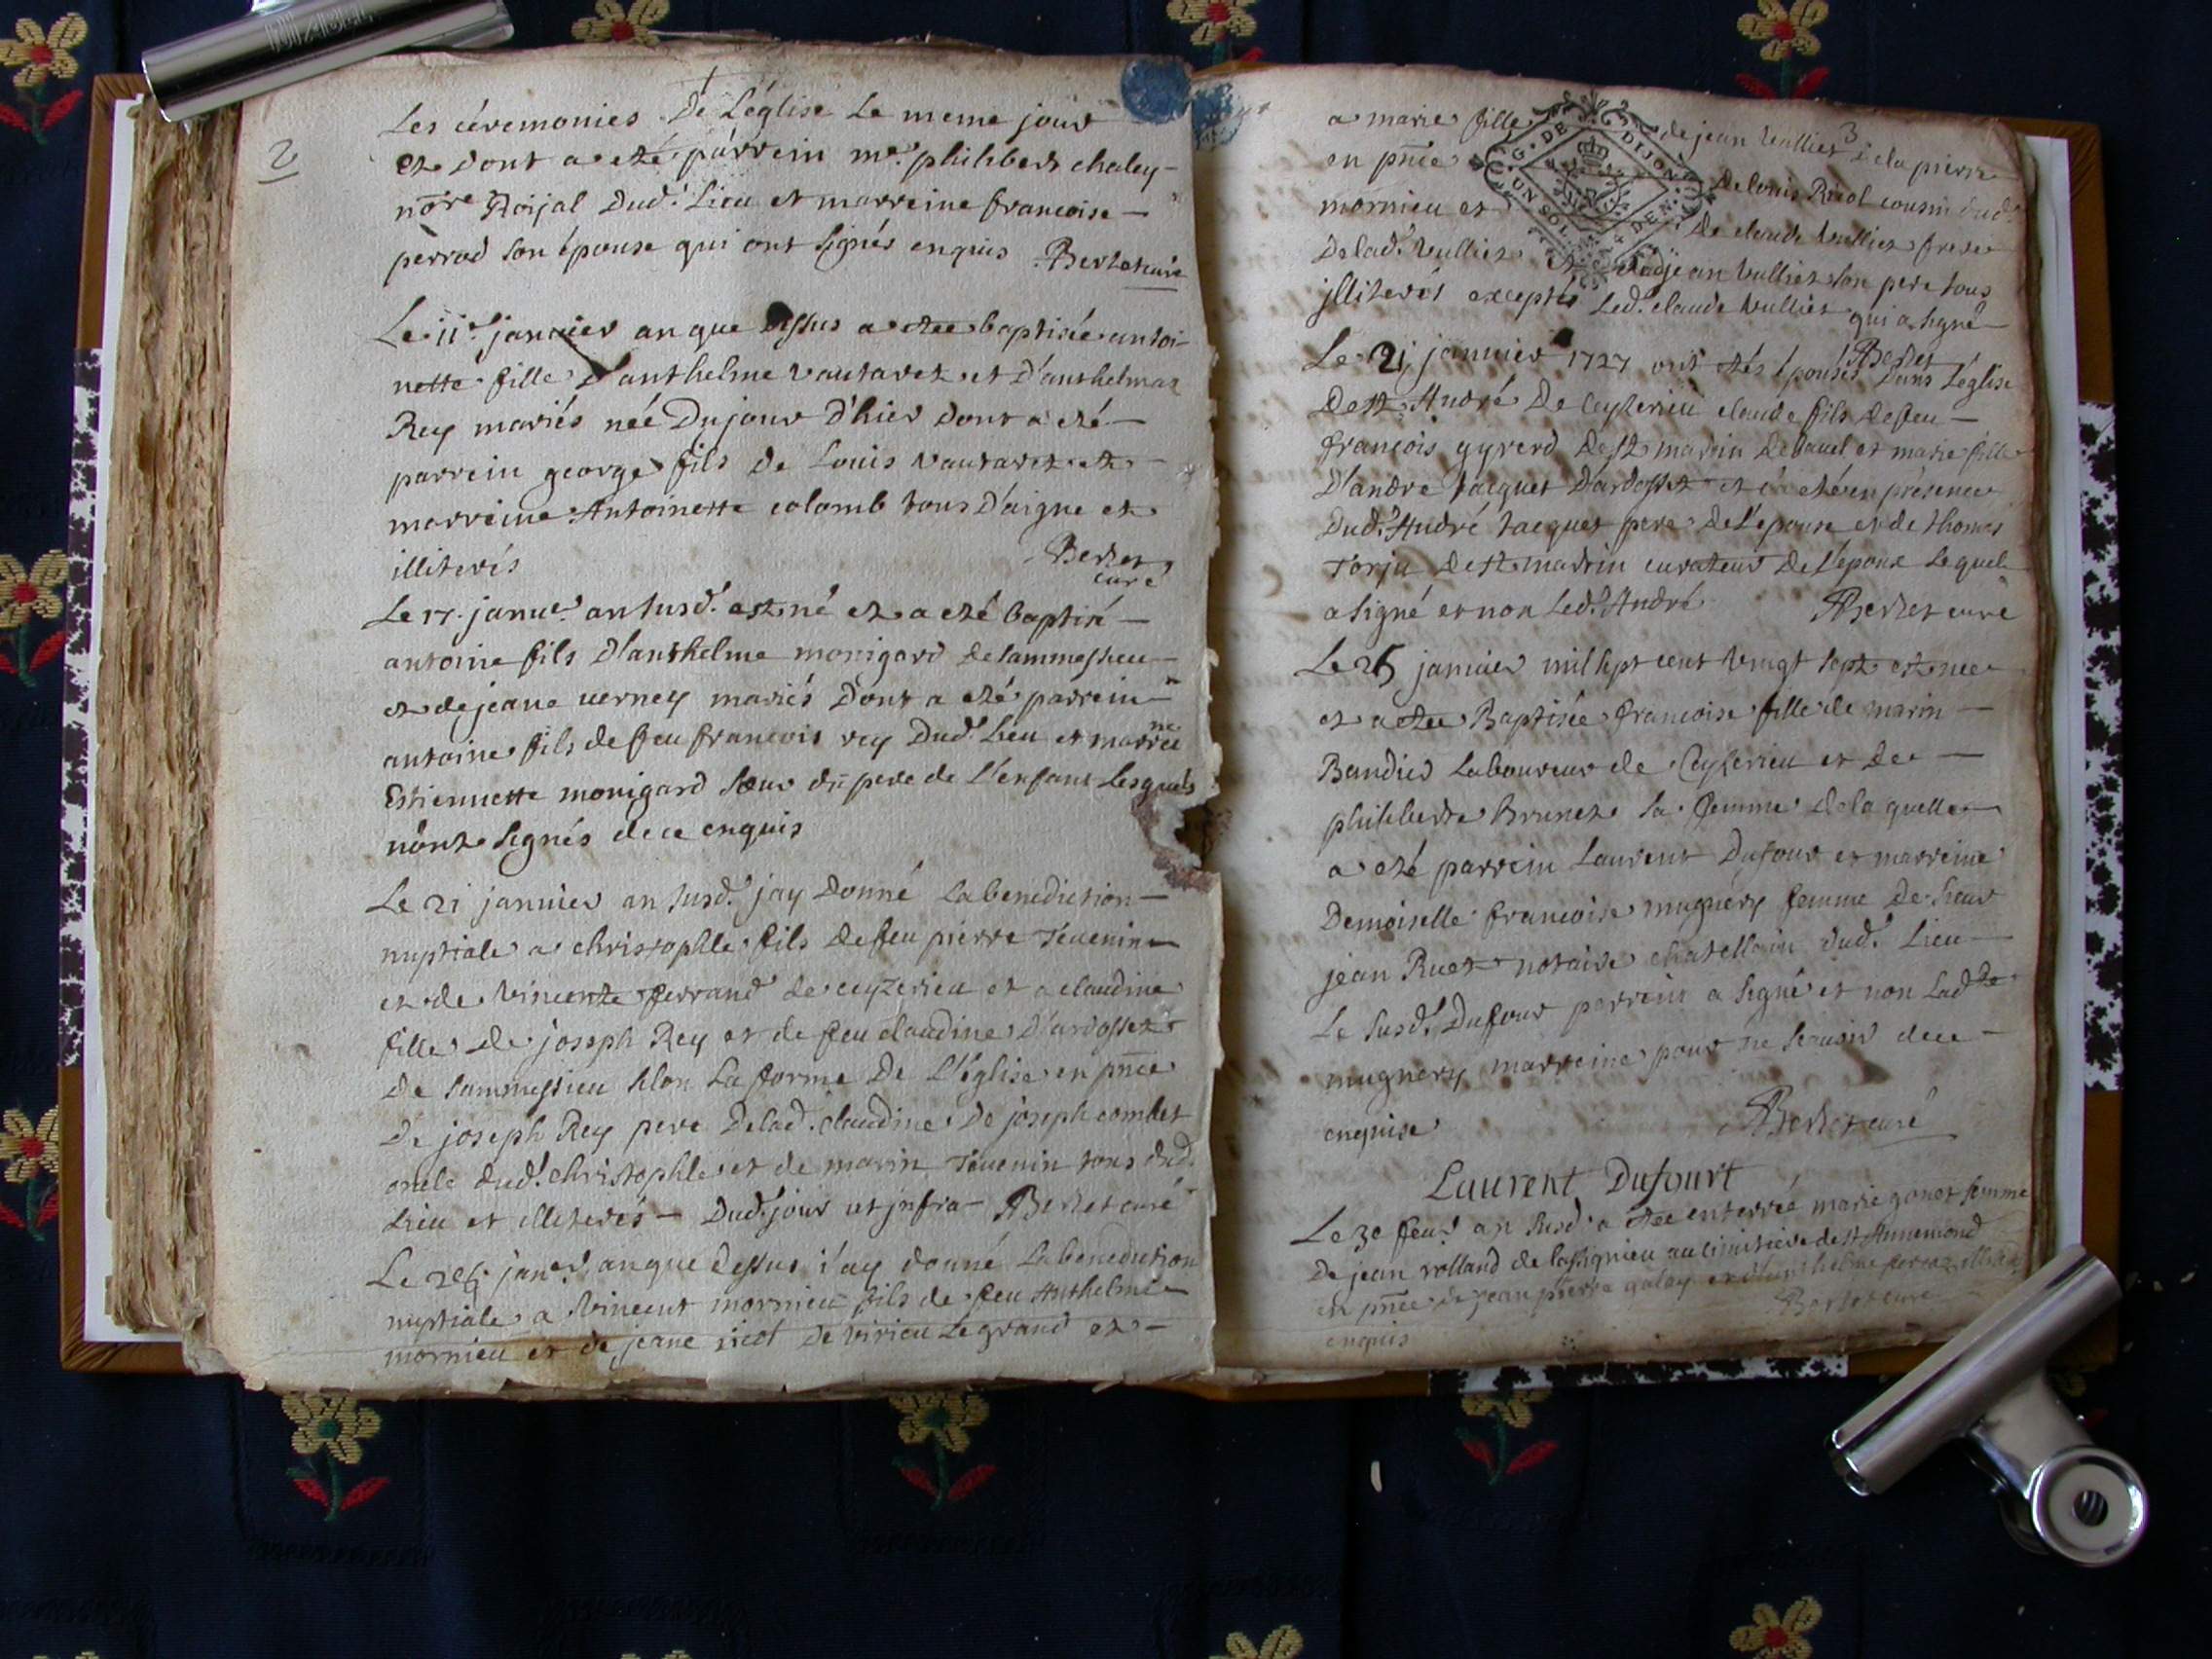 2
Les ceremonies De Léglise Le meme jour
et dont a eté parrein me. philibert chaley
nore Roijal Dud.t Lieu et marreine francoise
perrod son épouse qui ont signés enquis Berlet curé
Le 11e janvier an que dessus a etee baptisée antoi-
nette fille D'anthelme vautaret et D'anthelmaz
Rey mariés née Du jour d'hier dont a eté
parrein george fils de Louis vautaret et
marreine Antoinette colomb tous D'aigne et
illiterés Berlet
curé
Le 17. janvr. an susd.t est né et a eté baptisé
antoine fils D'anthelme monigard de sammessieu
et de jeane verney mariés dont a eté parrein
antoine fils de feu francois rey Dud.t Lieu et marrei
ne
Estiennette monigard sœur du pere de L'enfant Lesquels
n'ont signés de ce enquis
Le 21 janvier an susd.t jay Donné La benediction
nuptiale a christophle fils de feu pierre Tévenin
et de vincente ferrand de ceyzerieu et a claudine
fille de joseph Rey et de feu claudine D'ardosset
de sammessieu selon La forme De L'église en pnce
De joseph Rey pere De lad. claudine De joseph combet
oncle dud.t christophle et de marin Tévenin tous dud.
Lieu et illiterés Dud.t jour ut infra Berlet curé
Le janer. an que dessus j'ay donné La benediction
nuptiale a vincent mornieu fils de feu Anthelme
mornieu et de jeane de virieu Le grand et
3
a marie fille de jean vulliet de la pierre
en pnce de Louis cousin dud
mornieu et de claude vulliet frere
De lad.t vulliet et jean vulliet son pere tous
jlliterés exceptés Led. claude vulliet qui a signé
Berlet
G. DE DIJON
UN SOL 4 DEN.
Le 21 janvier 1727 ont etés épousés Dans L'église
De st. André De Ceyzerieu claude fils de feu
françois gyrerd De st martin De bavel et marie fille
D'andré jacquet D'ardosset et a eté en présence
Dud.t André jacquet pere De L'epouse et de thomas
Torju De st martin curateur De L'epoux Lequel
a signé et non Led.t André Berlet curé
Le 25 janvier mil sept cent vingt sept est nee
et a etee Baptisée francoise fille de marin
Bandier Laboureur de Ceyzerieu et De
philiberte Brunet sa femme De la quelle
a eté parrein Laurent Dufour et marreine
Demoiselle francoise mugnery femme De sieur
jean Ruet notaire chatellain dud.t Lieu
Le susd.t Dufour parrein a signé et non Ladte
mugnery marreine pour ne scavoir de ce
enquise Berlet curé
Laurent Dufourt
Le 3e fevr. an susd.t a etee enterrée marie gonet femme
De jean rolland de lassignieu au cimitiere de st Annemond
en pnce de jean pierre galay et d'anthelme illiterés
enquis Berlet curé